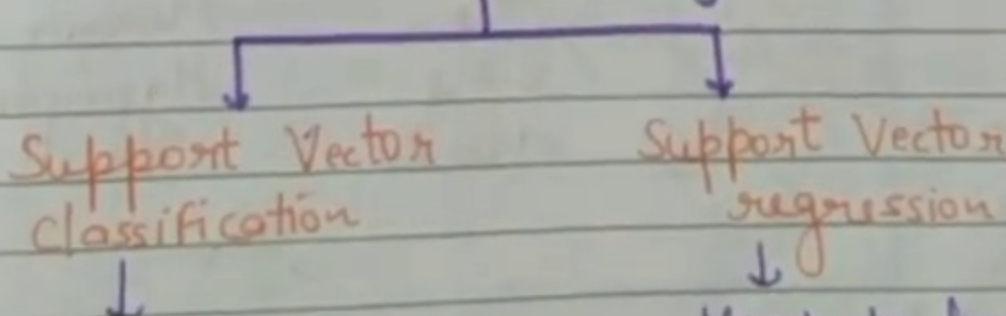 Support Vector
classification
Support Vector
regression